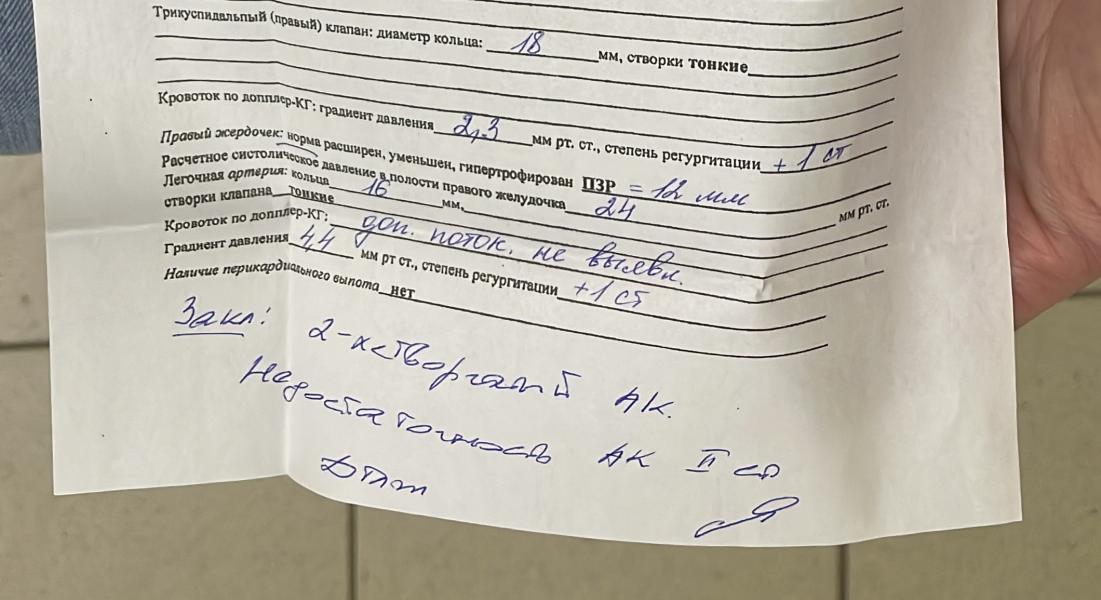 Трикуспидальный (правый) клапан: диаметр кольца: 18 мм, створки тонкие
Кровоток по допплер-КГ: градиент давления 2,3 мм рт. ст., степень регургитации +1 ст
Правый жердочек: норма расширен, уменьшен, гипертрофирован ПЗР = 12 мм
Расчетное систолическое давление в полости правого желудочка 24 мм рт. ст.
Легочная артерия: кольца 16 мм,
створки клапана тонкие
Кровоток по допплер-КГ: доп. поток. не выявл.
Градиент давления 4,4 мм рт ст., степень регургитации +1 ст
Наличие перикардиального выпота нет
Закл: 2-хстворчатый АК.
Недостаточность АК II ст